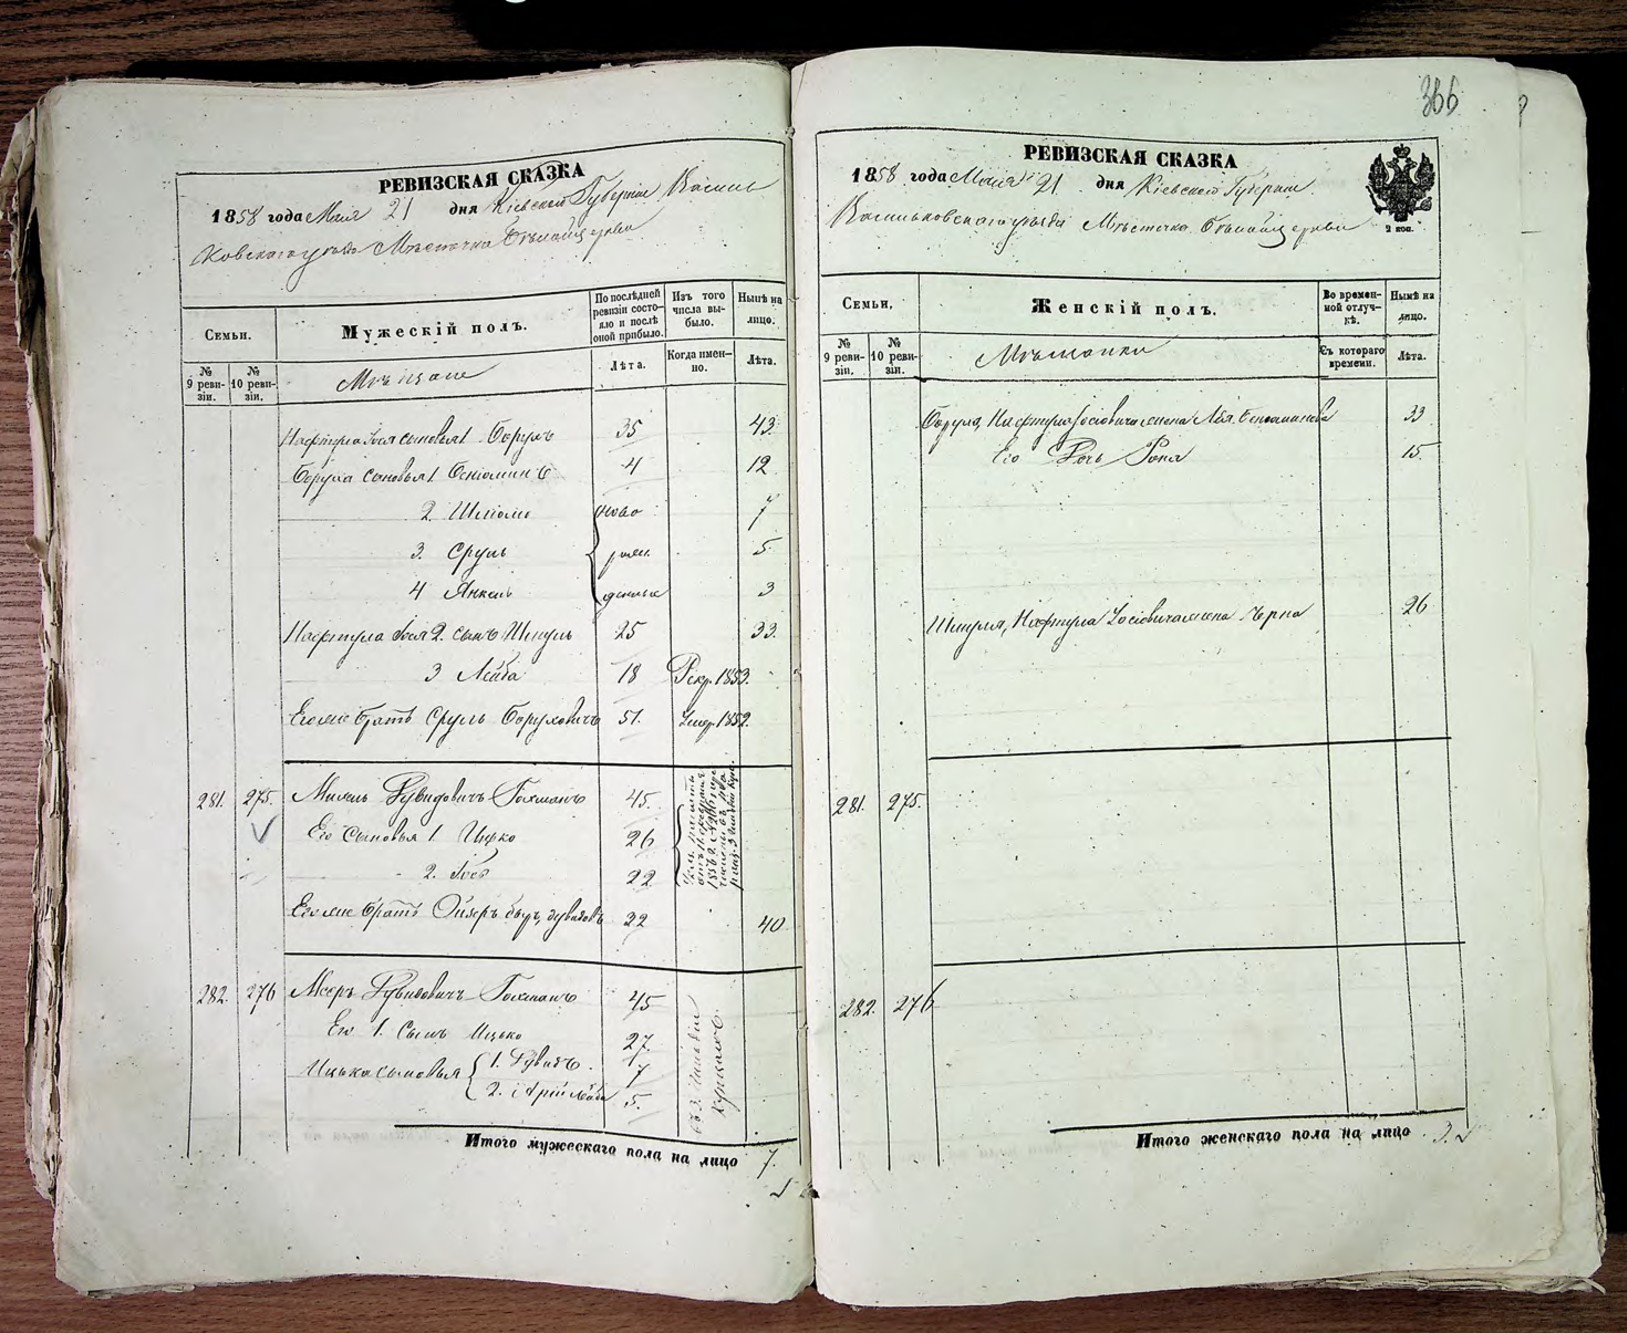 366
РЕВИЗСКАЯ СКАЗКА
1858 года Мая 21 дня Кіевской Губерніи Василь
ковскаго уѣзда Мѣстечка Бѣлойцеркви
Семьи.
Мужескій полъ.
По послѣдней ревизіи состояло и послѣ оной прибыло.
Изъ того числа выбыло.
Нынѣ на лицо.
№ 9 ревизіи.
№ 10 ревизіи.
Мѣщане
Лѣта.
Когда именно.
Лѣта.
Нафтула Іося сыновья 1 Борухъ 35 43
Боруха сыновья 1. Беніоминъ 4 12
2. Шлиома ново 7
3. Сруль рож 5
4 Янкель денные 3
Нафтула Іося 2. сынъ Шмуль 25 33.
3 Лейба 18 Рекр. 1853.
Его же братъ Сруль Боруховичъ 51. Умер. 1852.
281. 275. Михель Дувидовичъ Гохманъ 45.
Его сыновья 1. Ицко 26
2. Іось 22
Его же братъ Ойзеръ 32 40
282. 276 Мееръ Дувидовичъ Гохманъ 45
Его 1. Сынъ Ицько 27.
Ицька сыновья 1. Дувидъ. 7
2. Арій Лейба 5.
Итого мужескаго пола на лицо 7.
РЕВИЗСКАЯ СКАЗКА
1858 года Мая 21 дня Кіевской Губерніи
Васильковскаго уѣзда Мѣстечка Бѣлойцеркви
2 коп.
Семьи.
Женскій полъ.
Во временной отлучкѣ.
Нынѣ на лицо.
№ 9 ревизіи.
№ 10 ревизіи.
Мѣщанки
Съ котораго времени.
Лѣта.
Боруха, Нафтула Іосіовича жена Беніоминова 33
Его Дочь 15.
Шмуля, Нафтула Іосіовича жена Черна 26
281. 275.
282. 276
Итого женскаго пола на лицо 3.